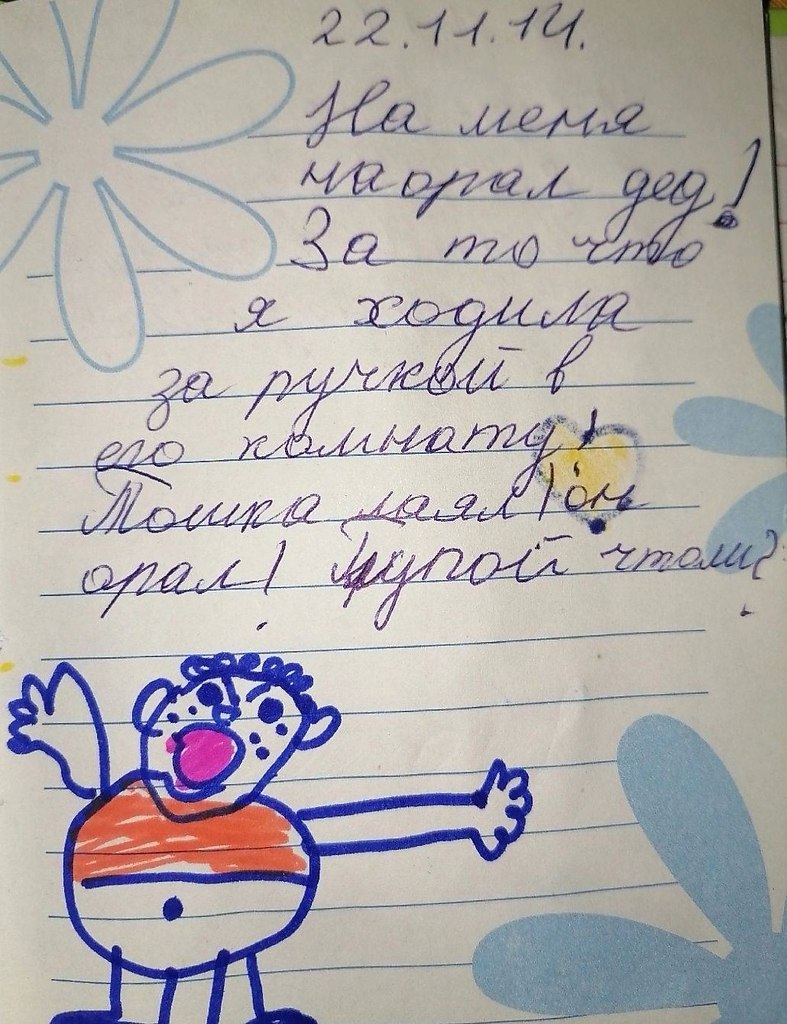 22.11.14.
На меня
наорал дед!
За то что
я ходила
за ручкой в
его комнату!
Тошка лаял! он
орал! Тупой чтоли?